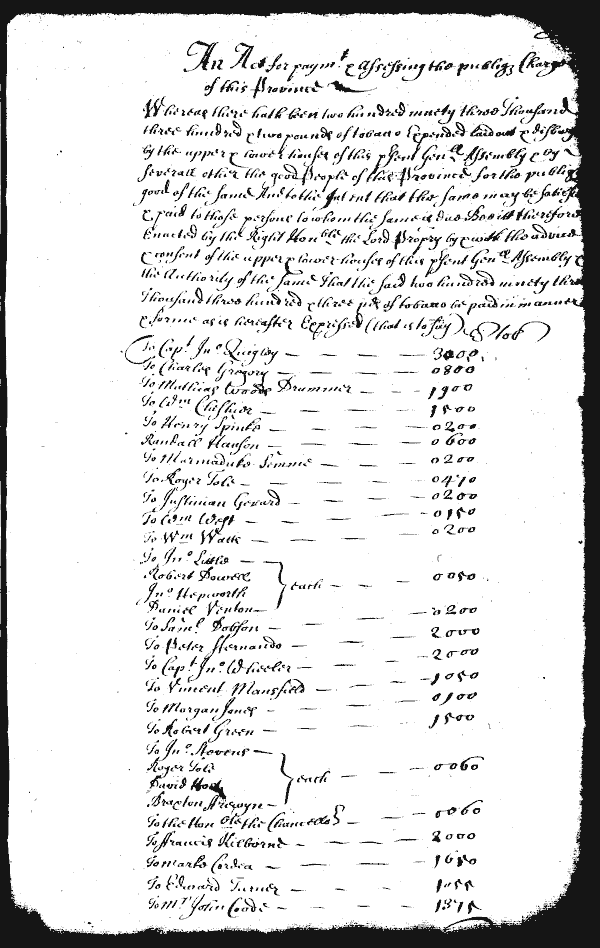 An Act for paym.t & Assessing the publiq Charge
of this Province
Whereas there hath been two hundred ninety three Thousand
three hundred & two pounds of tobacco Expended laid out & disbur
by the upper & lower houses of this psent Gen.ll Assembly & by
severall other the good People of this Province for the publiq
good of the Same And to the Intent that the same may be satisf
& paid to those persons to whom the same is due Be it therefore
Enacted by the Right Hon.ble the Lord Propry by & with the advice
& consent of the upper & lower houses of this psent Gen.ll Assembly &
the Authority of the same That the said two hundred ninety thre
Thousand three hundred & three pds of tobacco be paid in manner
& forme as is hereafter Expressed (that is to say)
To Cap.t Jn.o Quigley — 3000
To Charles Gregory — 0800
To Mathias Woods Drummer — 1900
To W.m Cheshier — 1500
To Henry Spinke — 0200
Randall Hanson — 0600
To Marmaduke Semme — 0200
To Roger Tole — 0410
To Justinian Gerard — 0200
To W.m West — 0150
To W.m Watts — 0200
To Jn.o Little
Robert Dowell
Jn.o Hepworth } each — 0050
Daniel Venton
To Sam.l Dobson — 0200
To Peter Hernando — 2000
To Cap.t Jn.o Wheeler — 2000
To Vincent Mansfield — 1050
To Morgan Jones — 0100
To Robert Green — 1500
To Jn.o Stevens
Roger Tole
David } each — 0060
Braxton
To the Hon.ble the Chancello.r — 0060
To Francis Kilborne — 2000
To marke Cordea — 1650
To Edward Turner — 1055
To M.r John Coode — 1375